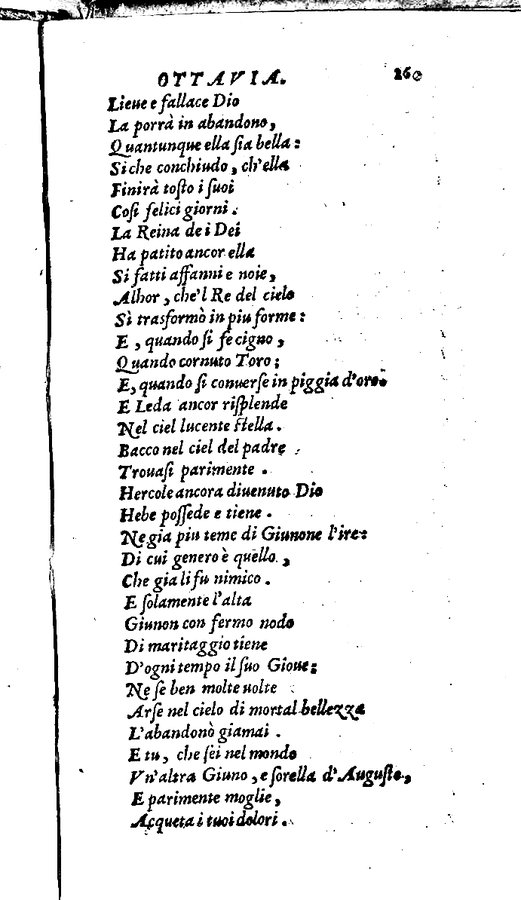 OTTAVIA. 260
Lieue e fallace Dio
La porrà in abandono,
Quantunque ella ſia bella:
Si che conchiudo, ch'ella
Finirà toſto i ſuoi
Coſi felici giorni.
La Reina de i Dei
Ha patito ancor ella
Si fatti affanni e noie,
Alhor, che'l Re del cielo
Sì trasformò in piu forme:
E, quando ſi fe cigno,
Quando cornuto Toro;
E, quando ſi conuerſe in piggia d'oro.
E Leda ancor riſplende
Nel ciel lucente ſtella.
Bacco nel ciel del padre
Trouaſi parimente.
Hercole ancora diuenuto Dio
Hebe poſſede e tiene.
Ne gia piu teme di Giunone l'ire:
Di cui genero è quello,
Che gia li fu nimico.
E ſolamente l'alta
Giunon con fermo nodo
Di maritaggio tiene
D'ogni tempo il ſuo Gioue:
Ne ſe ben molte uolte
Arſe nel cielo di mortal bellezza
L'abandonò giamai.
E tu, che ſei nel mondo
Vn'altra Giuno, e ſorella d'Auguſto,
E parimente moglie,
Acqueta i tuoi dolori.